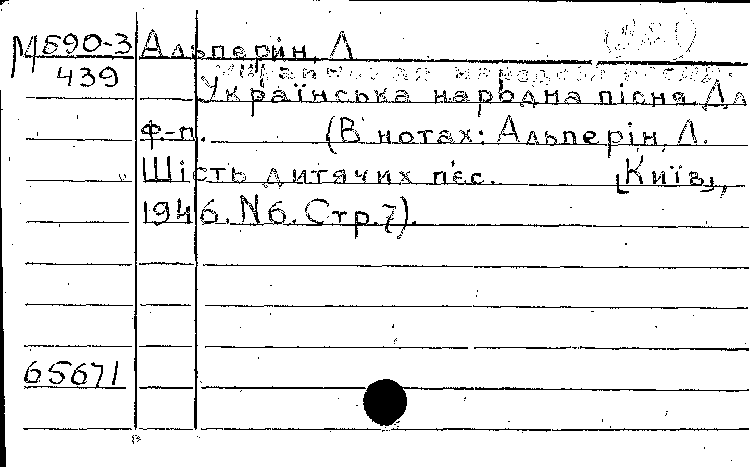 М590-3 Альперін, Л
439
Українська народна пісня. Дл
ф.-п. (В нотах: Альперін, Л.
Шість дитячих п'єс. [Київ],
1946. N6. Стр.7).
65671